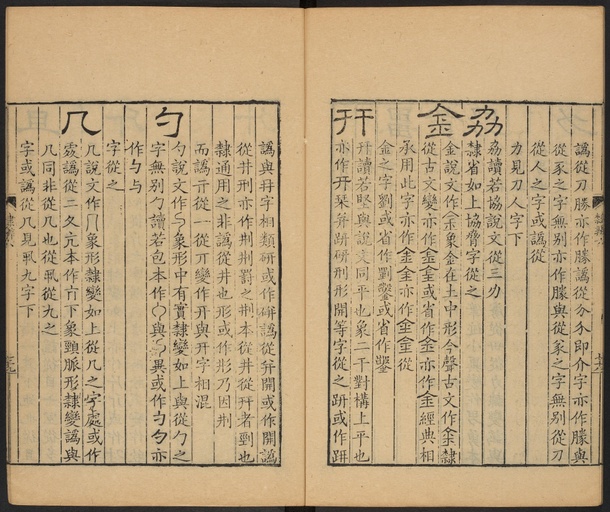 譌從刀勝亦作勝譌從分分即介字亦作勝與
從豕之字無别亦作勝與從豕之字無别從刀
從人之字或譌從
力見刀人字下
劦
劦讀若協說文從三力
隸省如上協脅字從之
金
金說文作金象金在土中形今聲古文作金隸
從古文變亦作金金或省作金亦作金經典相
承用此字亦作金金亦作金金從
金之字劉或省作劉鑿或省作鑿
幵
幵讀若堅與說文同平也象二干對構上平也
亦作开琹并趼研刑形開等字從之趼或作趼
譌與幵字相類研或作硏譌從幷開或作開譌
從井刑亦作刑荆罰之荆本從井從幵者剄也
隸通用之非譌從井也形或作彤乃因荆
而譌亓從一從丌變作开與幵字相混
勺
勺說文作勺象形中有實隸變如上與從勹之
字無别勹讀若包本作勹與勺異或作勺勺亦
作勺与
字從之
几
几說文作几象形隸變如上從几之字處或作
處譌從二久亢本作亢下象頸脈形隸變譌與
几同非從几也從凧從九之
字或譌從几見凧九字下